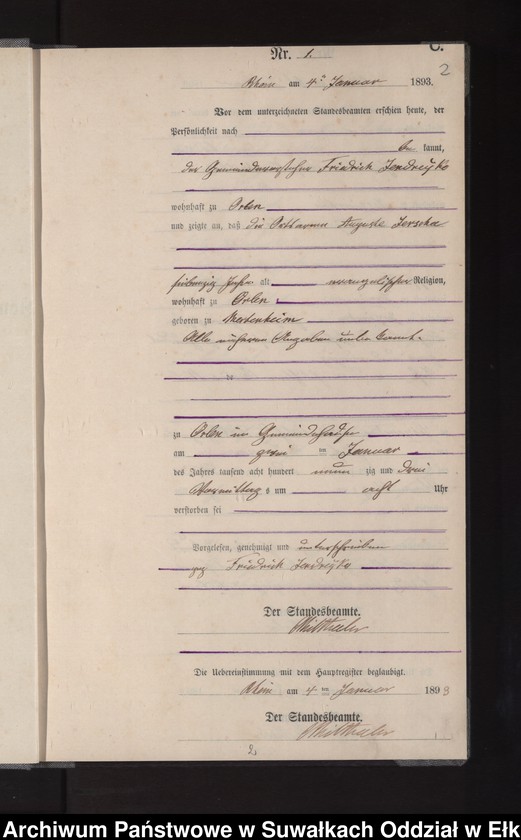 C.
Nr. 1.
2
Rhein am 4ten Januar 1893.
Vor dem unterzeichneten Standesbeamten erschien heute, der
Persönlichkeit nach
be kannt,
der Gemeindevorsteher Friedrich Jendreyko
wohnhaft zu Orlen
und zeigte an, daß die Ortsarme Auguste
siebenzig Jahre alt, evangelischer Religion,
wohnhaft zu Orlen
geboren zu Mertenheim
Alle näheren Angaben unbekannt.
zu Orlen im Gemeindehause
am zwei ten Januar
des Jahres tausend acht hundert neun zig und drei
Vormittags um acht Uhr
verstorben sei
Vorgelesen, genehmigt und unterschrieben
gez Friedrich Jendreyko
Der Standesbeamte.
Die Uebereinstimmung mit dem Hauptregister beglaubigt.
Rhein am 4 ten Januar 1893
Der Standesbeamte.
2,
Archiwum Państwowe w Suwałkach Oddział w Ełk